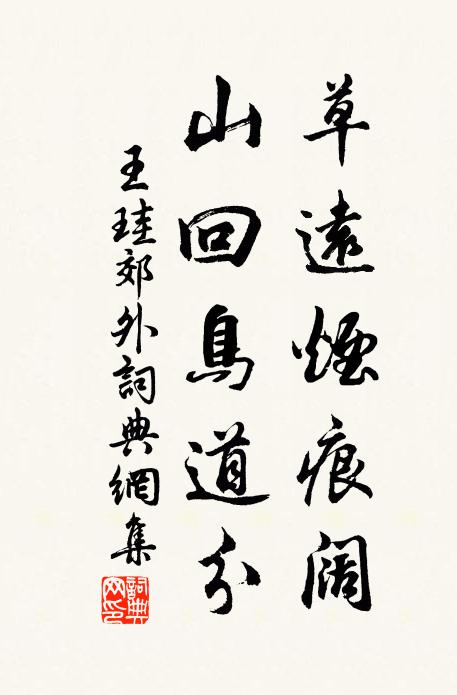 草遠煙痕闊
山回鳥道分
王珪郊外詞典網集
詞典網印